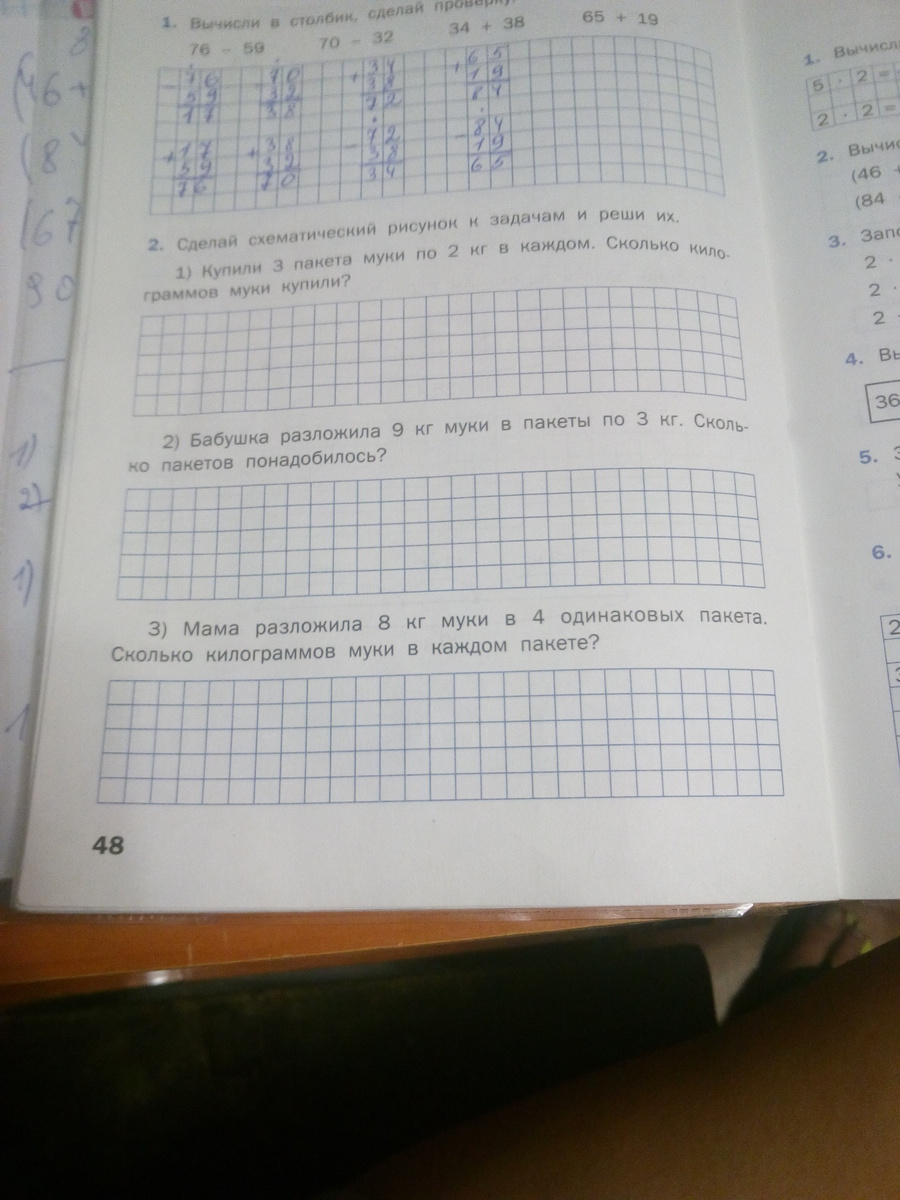 8
46+
(8
(67
90
1)
2)
1)
1. Вычисли в столбик, сделай проверку.
76 – 59 70 – 32 34 + 38 65 + 19
- 76 70 + 34 + 65
59 32 38 19
17 38 72 84
+ 17 + 38 - 72 - 84
59 32 38 19
76 70 34 65
2. Сделай схематический рисунок к задачам и реши их.
1) Купили 3 пакета муки по 2 кг в каждом. Сколько кило-
граммов муки купили?
2) Бабушка разложила 9 кг муки в пакеты по 3 кг. Сколь-
ко пакетов понадобилось?
3) Мама разложила 8 кг муки в 4 одинаковых пакета.
Сколько килограммов муки в каждом пакете?
48
1. Вычисл
5 · 2 =
2 · 2 =
2. Вычис
(46 +
(84
3. Запо
2 ·
2 ·
2
4. Вы
36
5. З
6.
2
3